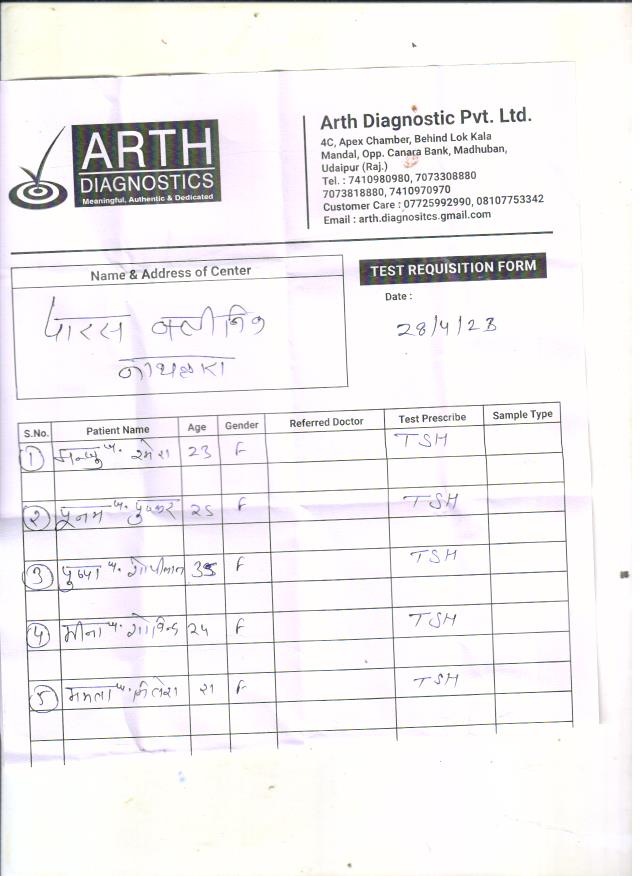 ARTH
DIAGNOSTICS
Meaningful, Authentic & Dedicated
Arth Diagnostic Pvt. Ltd.
4C, Apex Chamber, Behind Lok Kala
Mandal, Opp. Canara Bank, Madhuban,
Udaipur (Raj.)
Tel. : 7410980980, 7073308880
7073818880, 7410970970
Customer Care : 07725992990, 08107753342
Email : arth.diagnositcs.gmail.com
Name & Address of Center
TEST REQUISITION FORM
Date :
पारस क्लीनिक
28/4/23
S.No. Patient Name Age Gender Referred Doctor Test Prescribe Sample Type
1 रमेश 23 F TSH
2 पुनम 25 F TSH
3 पुष्पा 35 F TSH
4 मीना 24 F TSH
5 ममता 21 F TSH